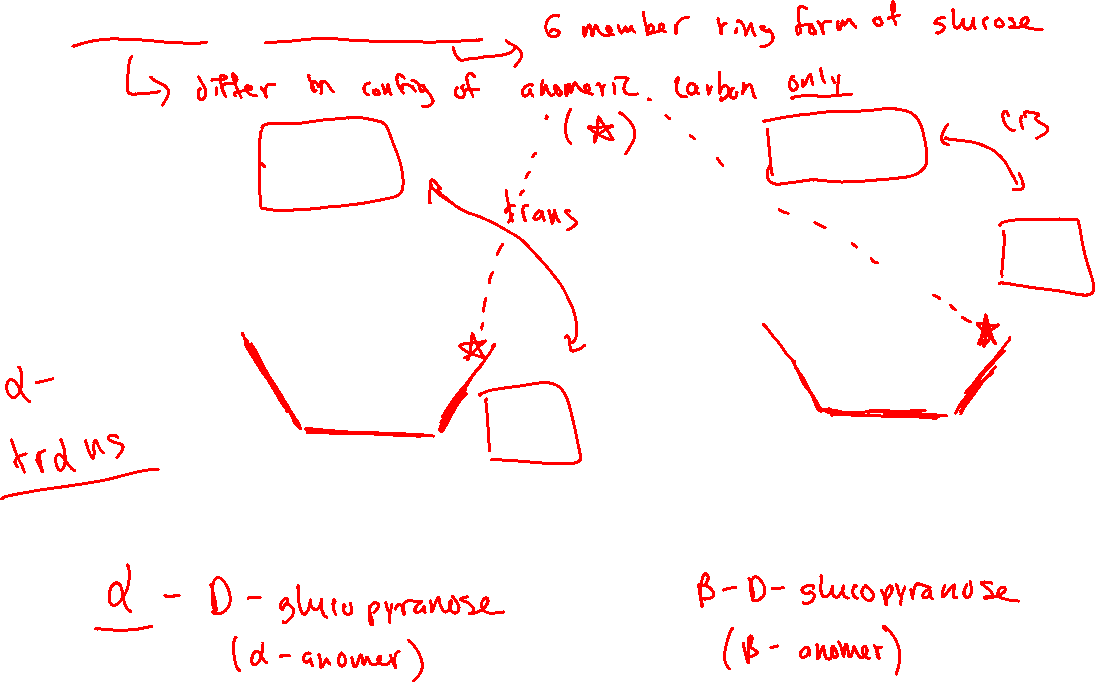 6 member ring form of glucose
differ in config of anomeric carbon only
(☆)
cis
trans
α-
trans
α - D - glucopyranose
(α-anomer)
β-D-glucopyranose
(β-anomer)